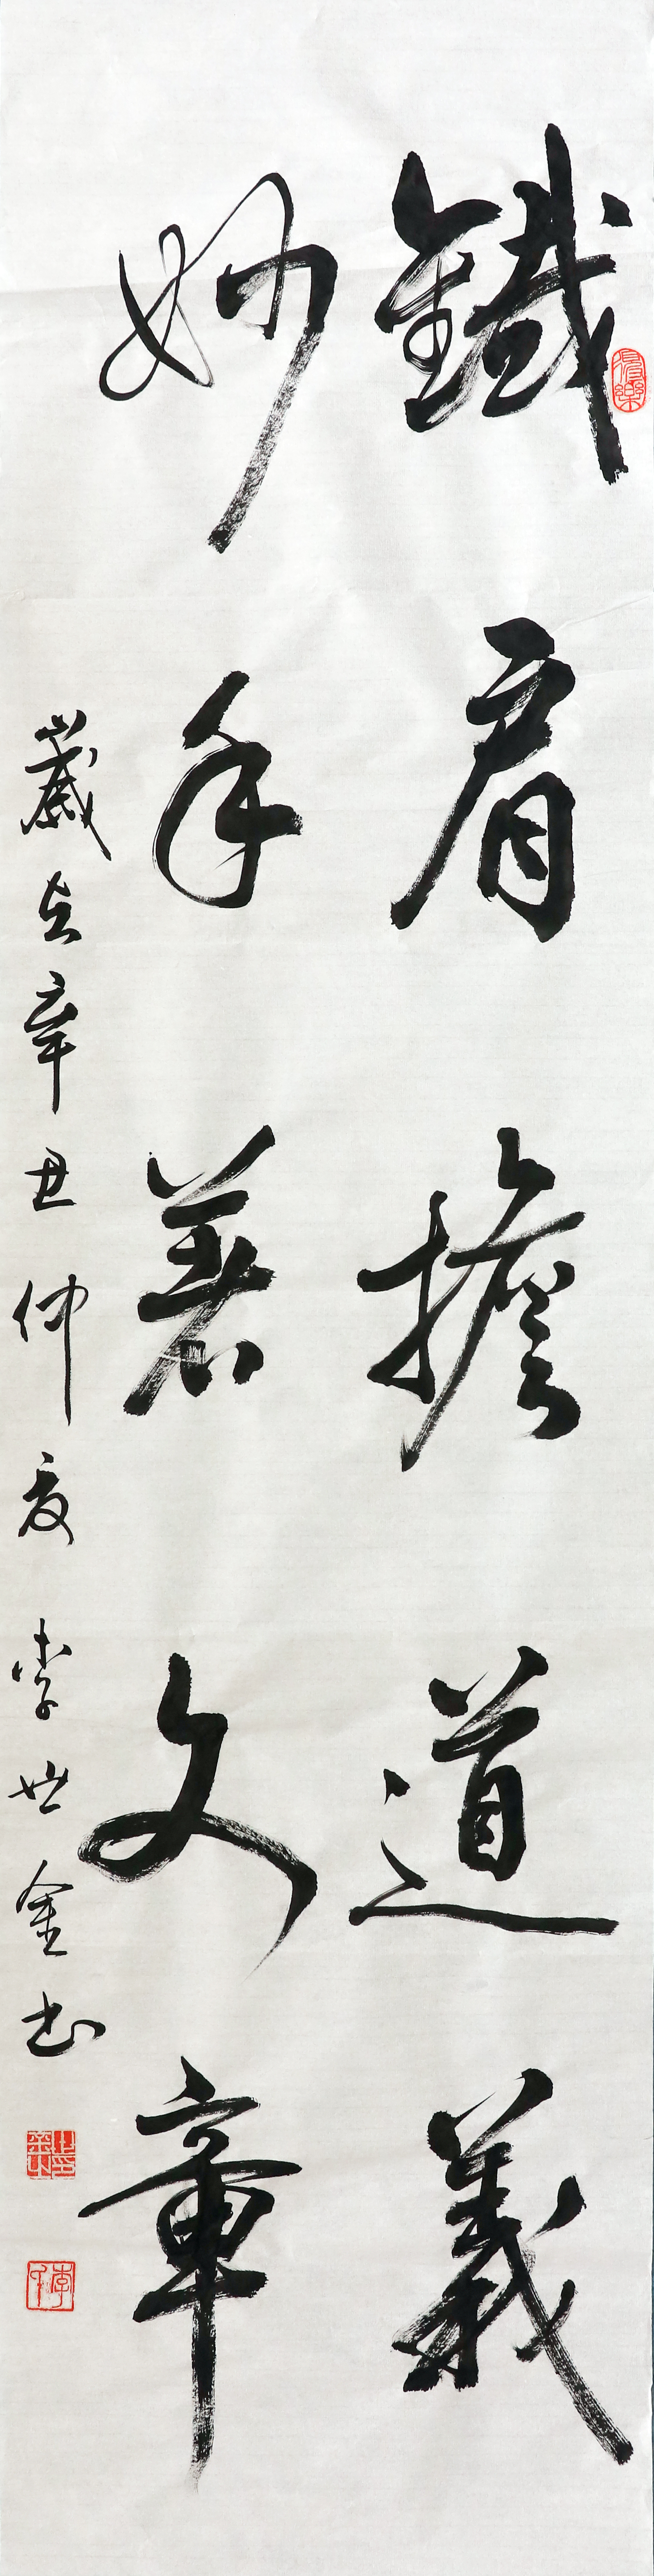 鐵肩擔道義
妙手著文章
歲在辛丑仲夏 李世金书